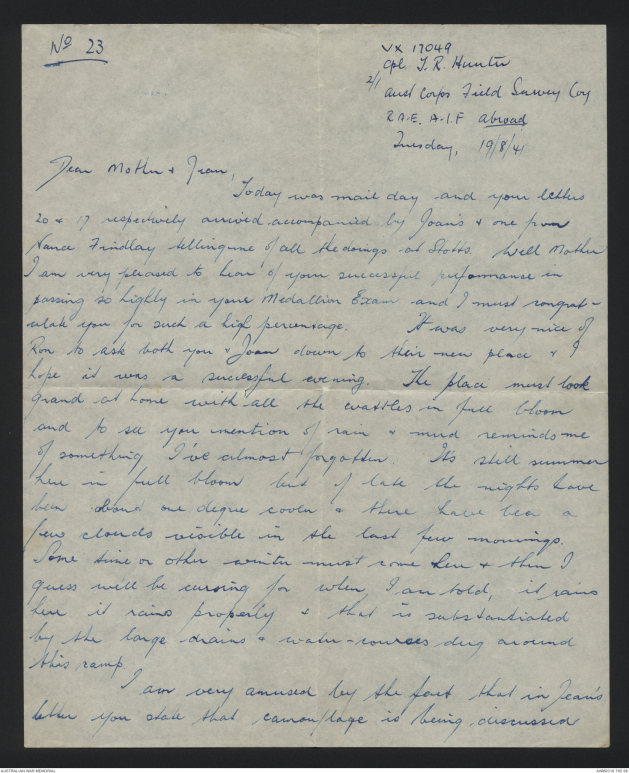 No 23
VX 17049
Cpl J. R. Hunter
2/1 Aust Corps Field Survey Coy
R.A.E. A.I.F Abroad
Tuesday, 19/8/41
Dear Mother & Jean,
Today was mail day and your letters
20 & 17 respectively arrived accompanied by Joan's & one from
Nance Findlay telling me of all the doings at Stotts. Well Mother
I am very pleased to hear of your successful preformance in
passing so highly in your Medallion Exam and I must congrat-
ulate you for such a high percentage. It was very nice of
Ron to ask both you & Joan down to their new place & I
hope it was a successful evening. The place must look
grand at home with all the wattles in full bloom
and to see you mention of rain & mud reminds me
of something I've almost forgotten. Its still summer
here in full bloom but of late the nights have
been about one degree cooler & there have been a
few clouds visible in the last few mornings.
Some time or other winter must come here & then I
guess will be cursing for when, I am told, it rains
here it rains properly & that is substantiated
by the large drains & water-courses dug around
this camp.
I am very amused by the fact that in Jean's
letter you state that camouflage is being discussed
AUSTRALIAN WAR MEMORIAL